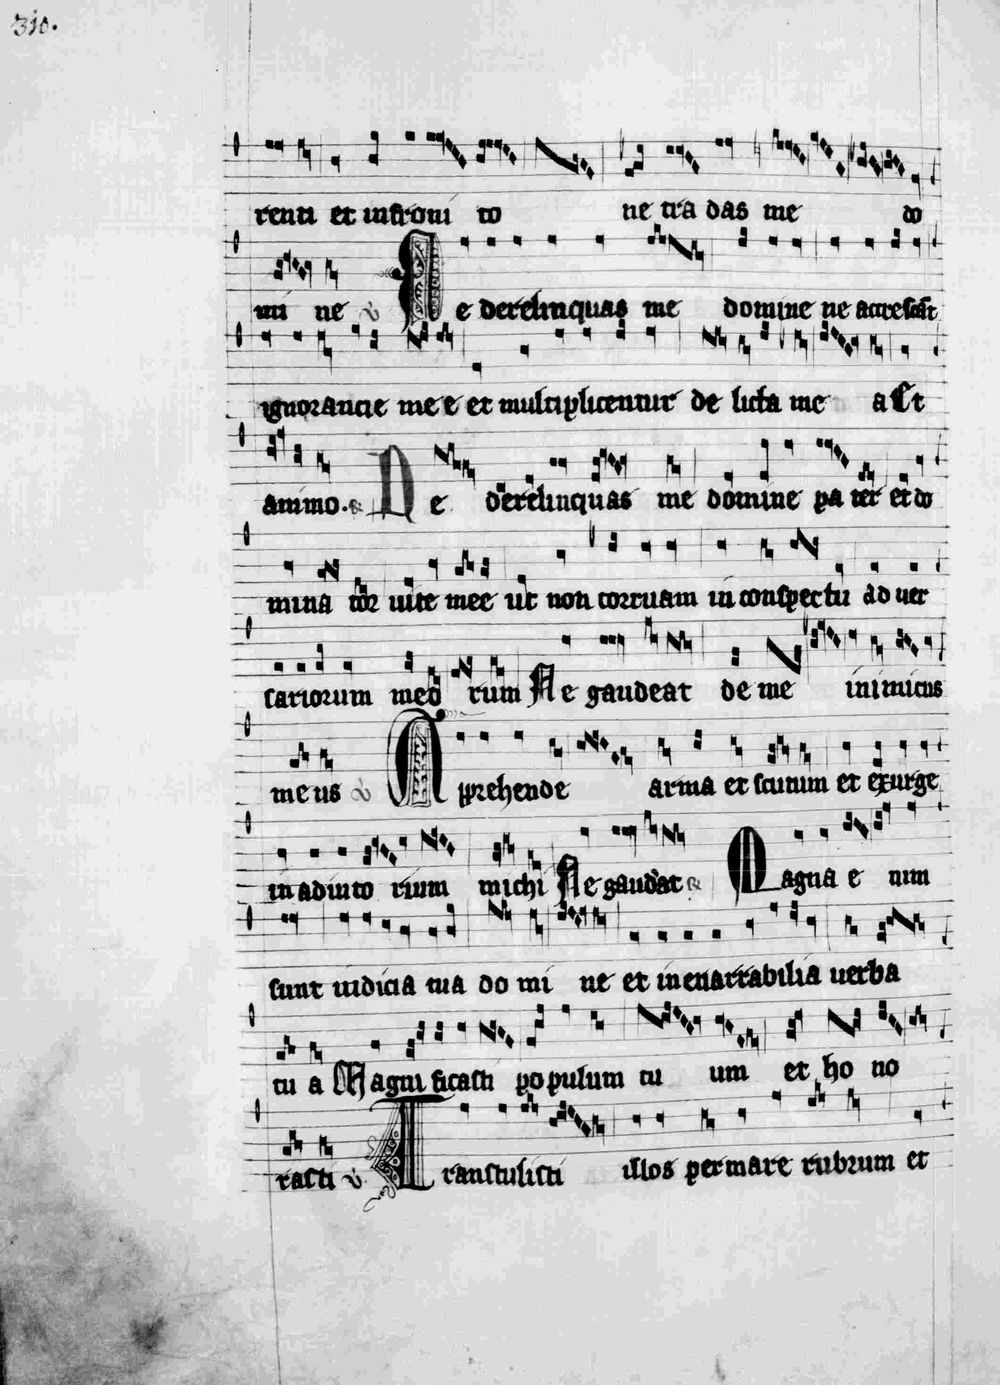 310.
renti et infroni to ne tra das me do
mi ne v Ne derelinquas me domine ne accrescāt
ignorancie me e et multiplicentur de licta me a Et
animo. Ne derelinquas me domine pa ter et do
mina tor uite mee ut non corruam in conspectu ad uer
sariorum meo rum Ne gaudeat de me inimicus
me us v Apprehende arma et scutum et exurge
in adiuto rium michi Ne gaudeat Magna e nim
sunt iudicia tua do mi ne et inenarrabilia uerba
tu a Magni ficasti populum tu um et ho no
rasti v Transtulisti illos per mare rubrum et